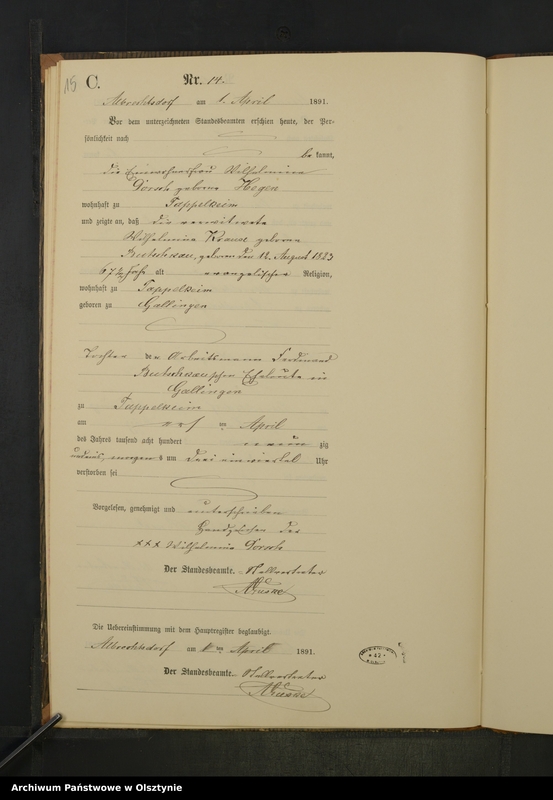 15 C. Nr. 14.
Albrechtsdorf am 1. April 1891.
Vor dem unterzeichneten Standesbeamten erschien heute, der Per-
sönlichkeit nach
be kannt,
die Einwohnerfrau Wilhelmine
Dorsch geborne
wohnhaft zu Tappelkeim
und zeigte an, daß die verwittwete
Wilhelmina Krause geborne
geboren den 12. August 1823
67 1/2 Jahr alt evangelischer Religion,
wohnhaft zu Tappelkeim
geboren zu Gallingen
Tochter der Arbeitsmann Ferdinand
Eheleute in
Gallingen
zu Tappelkeim
am ten April
des Jahres tausend acht hundert neun zig
und eins, morgens um drei einviertel Uhr
verstorben sei
Vorgelesen, genehmigt und unterschrieben
Handzeichen der
xxx Wilhelmine Dorsch
Der Standesbeamte. Stellvertreter
Die Uebereinstimmung mit dem Hauptregister beglaubigt.
Albrechtsdorf am ten April 1891.
Der Standesbeamte. Stellvertreter
* 42 *
Archiwum Państwowe w Olsztynie